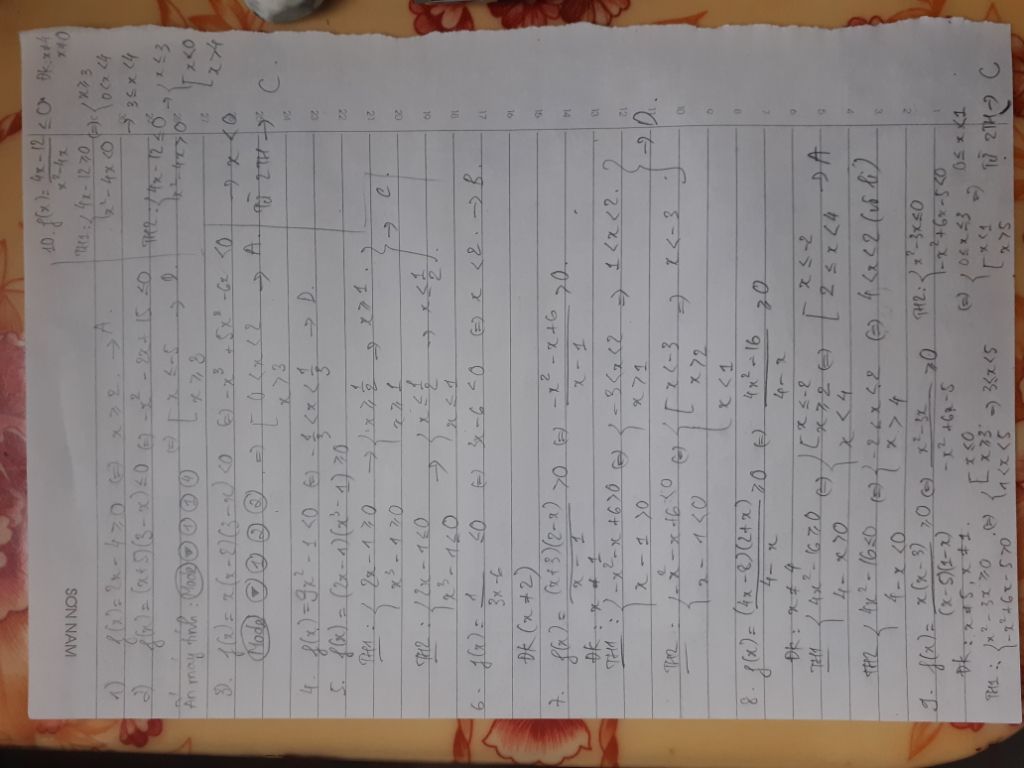 SON NAM
1) f(x) = 2x - 4 ≥ 0 (=) x ≥ 2. → A.
2) f(x) = (x+5)(3-x) ≤ 0 (=) -x² - 2x + 15 ≤ 0
(=) [ x ≤ -5
x ≥ 3 → D.
Ấn máy tính: Mode ▼ 1 1 3 4
3. f(x) = x(x-2)(3-x) < 0 (=) -x³ + 5x² - 6x < 0
Mode ▼ 1 2 2 2 (=) [ 0 < x < 2
x > 3 → A.
4. f(x) = 9x² - 1 < 0 (=) -1/3 < x < 1/3 → D.
5. f(x) = (2x-1)(x³-1) ≥ 0
TH1: { 2x - 1 ≥ 0
x³ - 1 ≥ 0 → { x ≥ 1/2
x ≥ 1 → x ≥ 1.
TH2: { 2x - 1 ≤ 0
x³ - 1 ≤ 0 → { x ≤ 1/2
x ≤ 1 → x ≤ 1/2.
} → C.
6. f(x) = 1/(3x-6) ≤ 0 (=) 3x - 6 < 0 (=) x < 2. → B.
ĐK (x ≠ 2)
7. f(x) = (x+3)(2-x)/(x-1) > 0 (=) (-x² - x + 6)/(x-1) > 0.
ĐK: x ≠ 1
TH1: { -x² - x + 6 > 0
x - 1 > 0 (=) { -3 < x < 2
x > 1 => 1 < x < 2.
TH2: { -x² - x + 6 < 0
x - 1 < 0 (=) { [ x < -3
x > 2
x < 1 => x < -3.
} → D.
8. f(x) = (4x-8)(2+x)/(4-x) ≥ 0 (=) (4x² - 16)/(4-x) ≥ 0
ĐK: x ≠ 4
TH1 { 4x² - 16 ≥ 0
4 - x > 0 (=) { [ x ≤ -2
x ≥ 2
x < 4 (=) [ x ≤ -2
2 ≤ x < 4 → A
TH2 { 4x² - 16 ≤ 0
4 - x < 0 (=) { -2 ≤ x ≤ 2
x > 4 (=) 4 < x < 2 (vô lí)
9. f(x) = x(x-3)/(x-5)(1-x) ≥ 0 (=) (x² - 3x)/(-x² + 6x - 5) ≥ 0
ĐK: x ≠ 5, x ≠ 1.
TH1: { x² - 3x ≥ 0
-x² + 6x - 5 > 0. (=) { [ x ≤ 0
x ≥ 3
1 < x < 5 => 3 ≤ x < 5
TH2: { x² - 3x ≤ 0
-x² + 6x - 5 < 0
(=) { 0 ≤ x ≤ 3
[ x < 1
x > 5 => 0 ≤ x < 1
Từ 2TH → C
10. f(x) = (4x - 12)/(x² - 4x) ≤ 0 ĐK: x ≠ 4
x ≠ 0
TH1: { 4x - 12 ≥ 0
x² - 4x < 0 (=) { x ≥ 3
0 < x < 4
→ 3 ≤ x < 4
TH2: { 4x - 12 ≤ 0
x² - 4x > 0 → { x ≤ 3
[ x < 0
x > 4
→ x < 0
Từ 2TH → C.